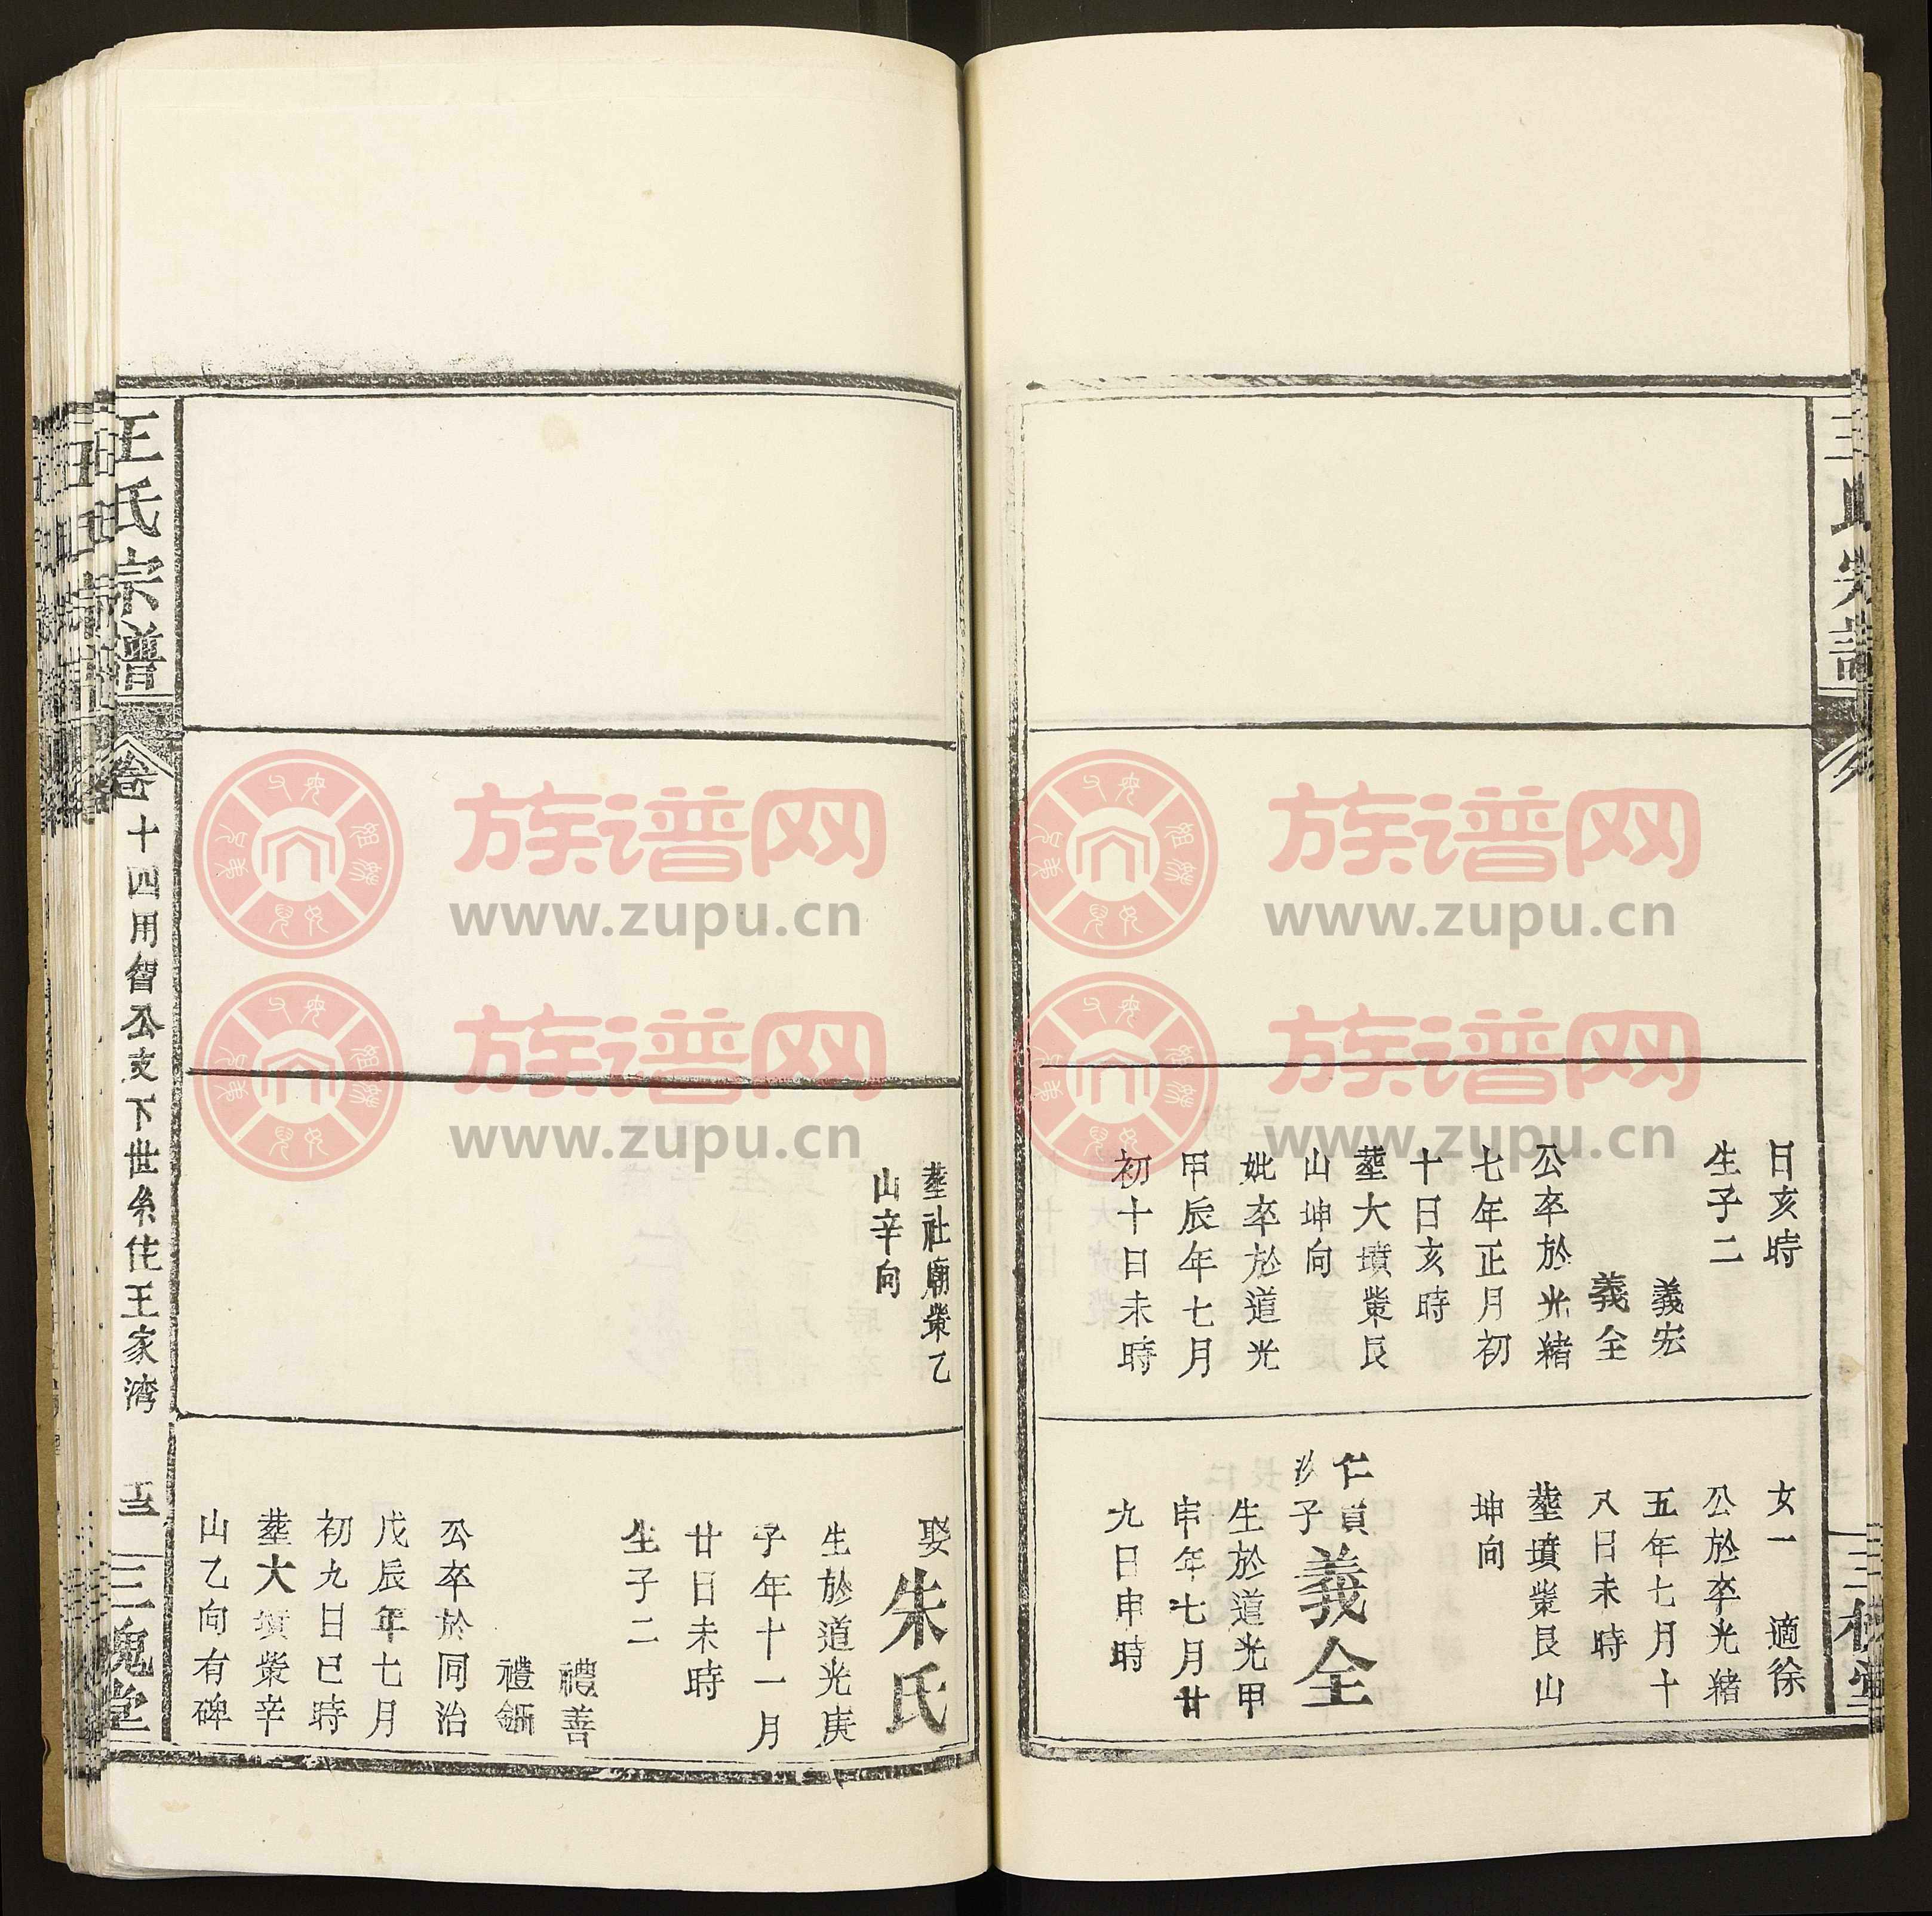 日亥時
生子二
義宏
義全
公卒於光緒
七年正月初
十日亥時
塟大墳塋艮
山坤向
妣卒於道光
甲辰年七月
初十日未時
女一　適徐
公於卒光緒
五年七月十
八日未時
塟墳塋艮山
坤向
仁貲
次子義全
生於道光甲
申年七月廿
九日申時
塟社廟塋乙
山辛向
娶朱氏
生於道光庚
子年十一月
廿日未時
生子二
禮善
禮鈵
公卒於同治
戊辰年七月
初九日巳時
塟大墳塋辛
山乙向有碑
王氏宗譜
卷十四用智公支下世系住王家湾
三槐堂
族谱网
www.zupu.cn
族谱网
www.zupu.cn
族谱网
www.zupu.cn
族谱网
www.zupu.cn